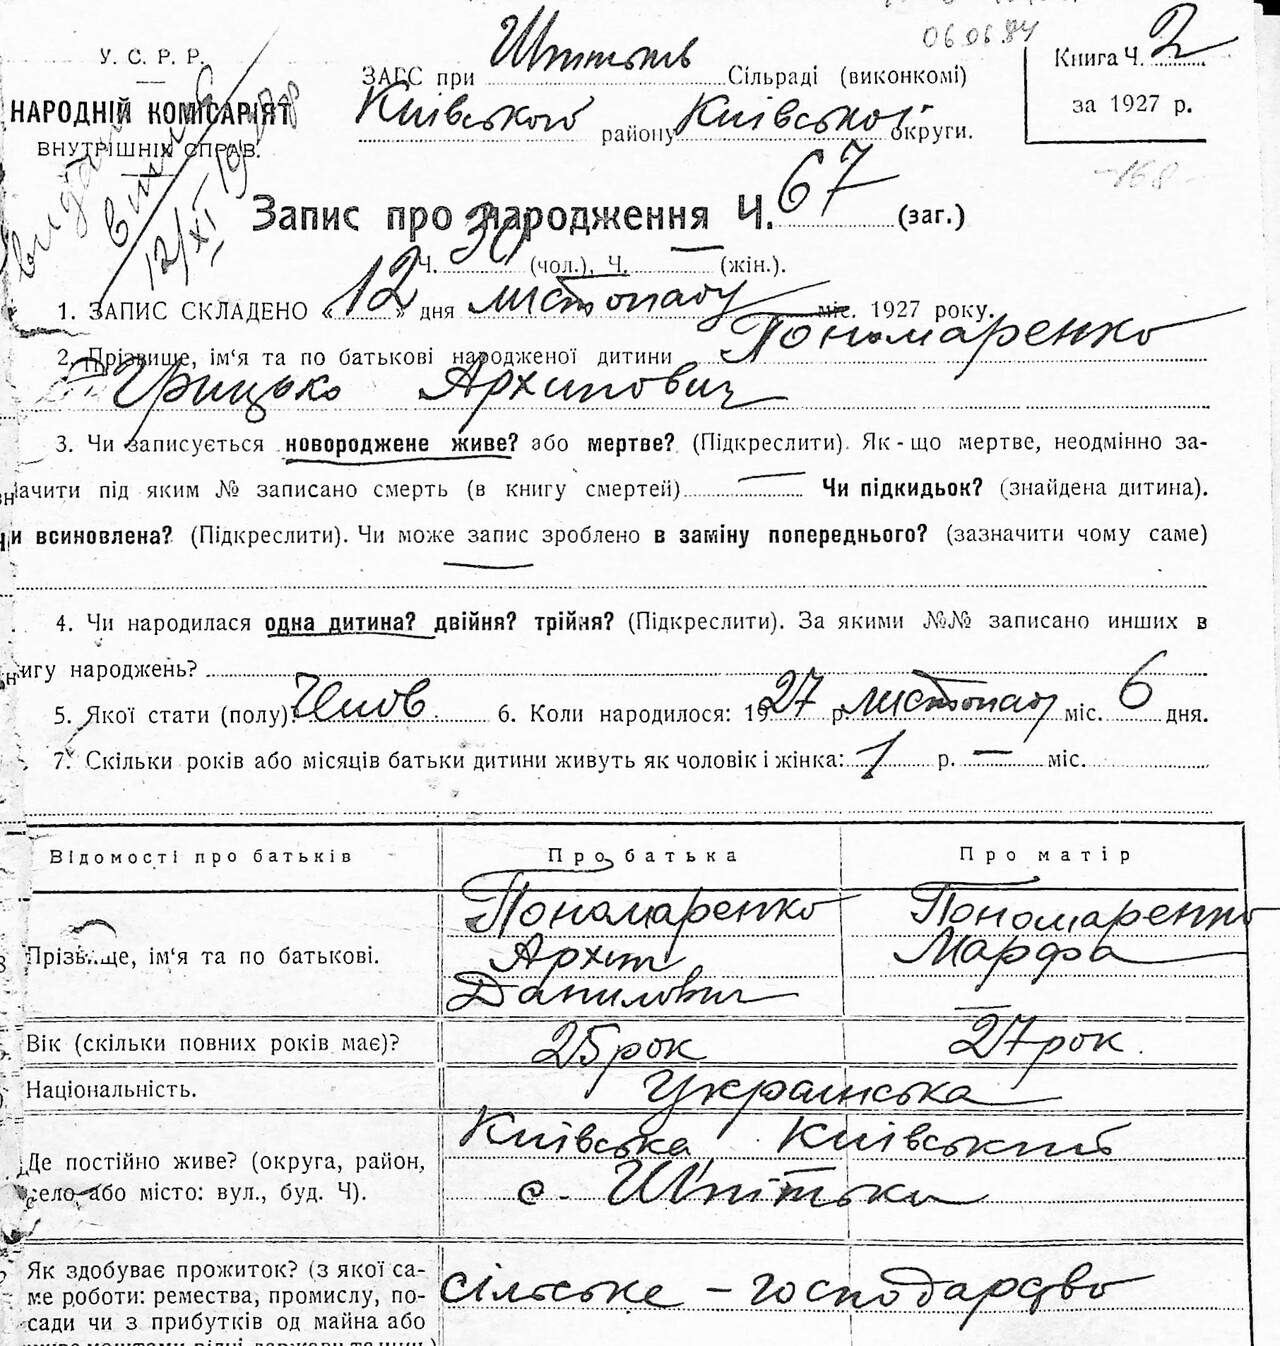 06.06.84
У. С. Р. Р.
НАРОДНІЙ КОМІСАРІЯТ
ВНУТРІШНІХ СПРАВ.
видано
12/XI
ЗАГС при Шпитьків Сільраді (виконкомі)
Київського району Київської округи.
Книга Ч. 2
за 1927 р.
-168-
Запис про народження Ч. 67 (заг.)
Ч. 30 (чол.), Ч. — (жін.).
1. ЗАПИС СКЛАДЕНО « 12 » дня листопаду міс. 1927 року.
2. Прізвище, ім‘я та по батькові народженої дитини Пономаренко
Грицько Архипович
3. Чи записується новороджене живе? або мертве? (Підкреслити). Як-що мертве, неодмінно за-
начити під яким № записано смерть (в книгу смертей) — Чи підкидьок? (знайдена дитина).
Чи всиновлена? (Підкреслити). Чи може запис зроблено в заміну попереднього? (зазначити чому саме)
—
4. Чи народилася одна дитина? двійня? трійня? (Підкреслити). За якими №№ записано инших в
книгу народжень?
5. Якої стати (полу): Чолов. 6. Коли народилося: 1927 р. листопаду міс. 6 дня.
7. Скільки років або місяців батьки дитини живуть як чоловік і жінка: 1 р. — міс.
Відомості про батьків Про батька Про матір
Прізвище, ім‘я та по батькові. Пономаренко Архип Данилович Пономаренко Марфа —
Вік (скільки повних років має)? 25 рок 27 рок.
Національність. Українська
Де постійно живе? (округа, район, Київська Київський
село або місто: вул., буд. Ч). с. Шпітьки
Як здобуває прожиток? (з якої са-
ме роботи: ремества, промислу, по- сільське – господарство
сади чи з прибутків од майна або